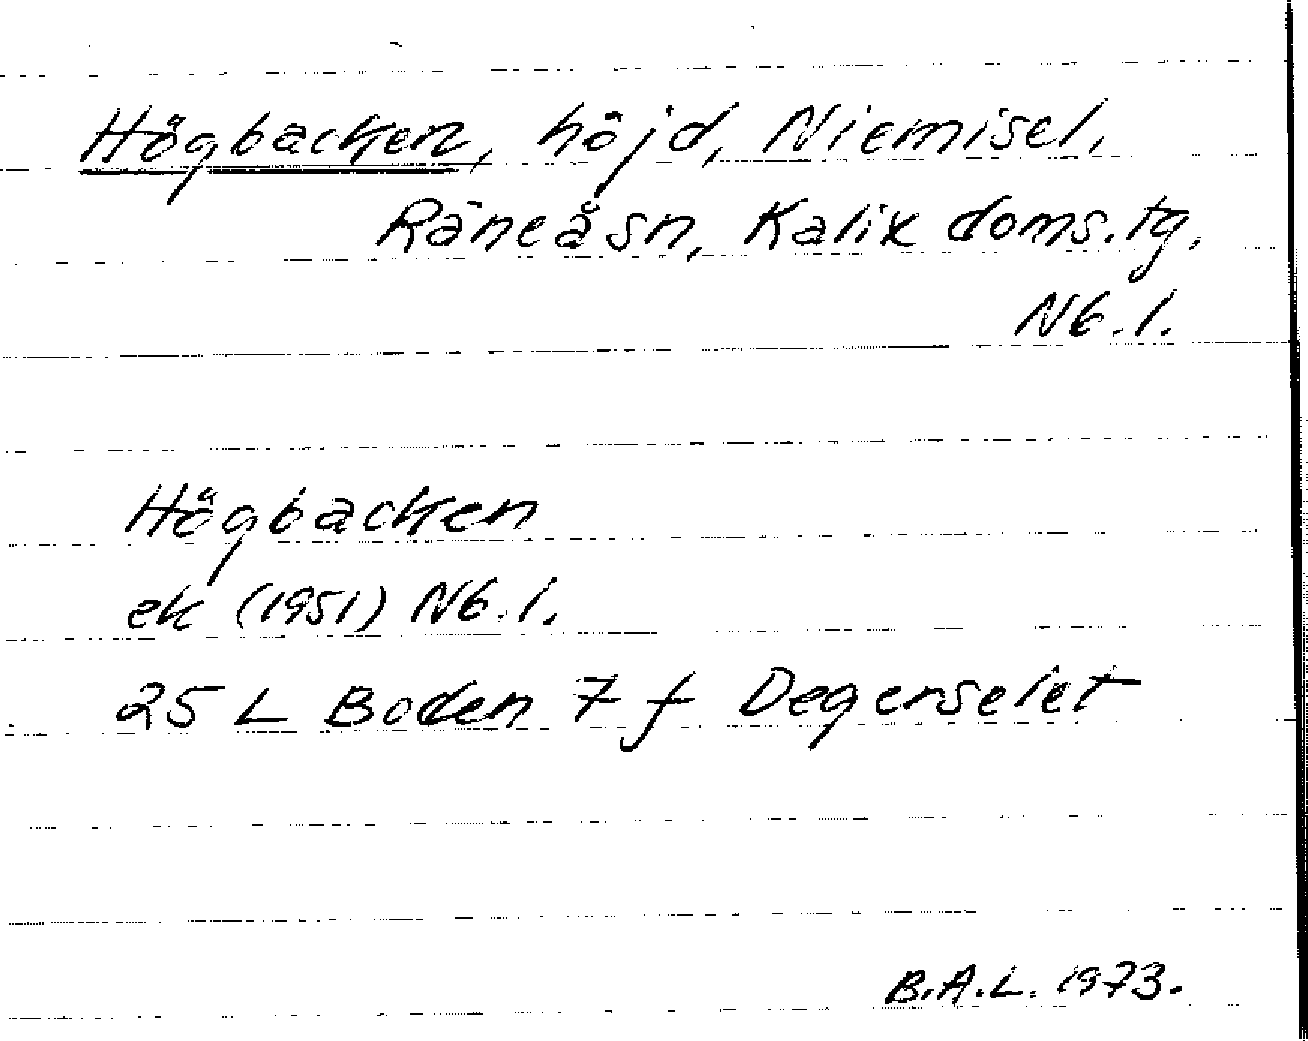 Högbacken, höjd, Niemisel,
Råneå sn, Kalix doms.tg,
Nb.l.
Högbacken
ek (1951) Nb.l.
25 L Boden 7 f Degerselet
B.A.L. 1973.